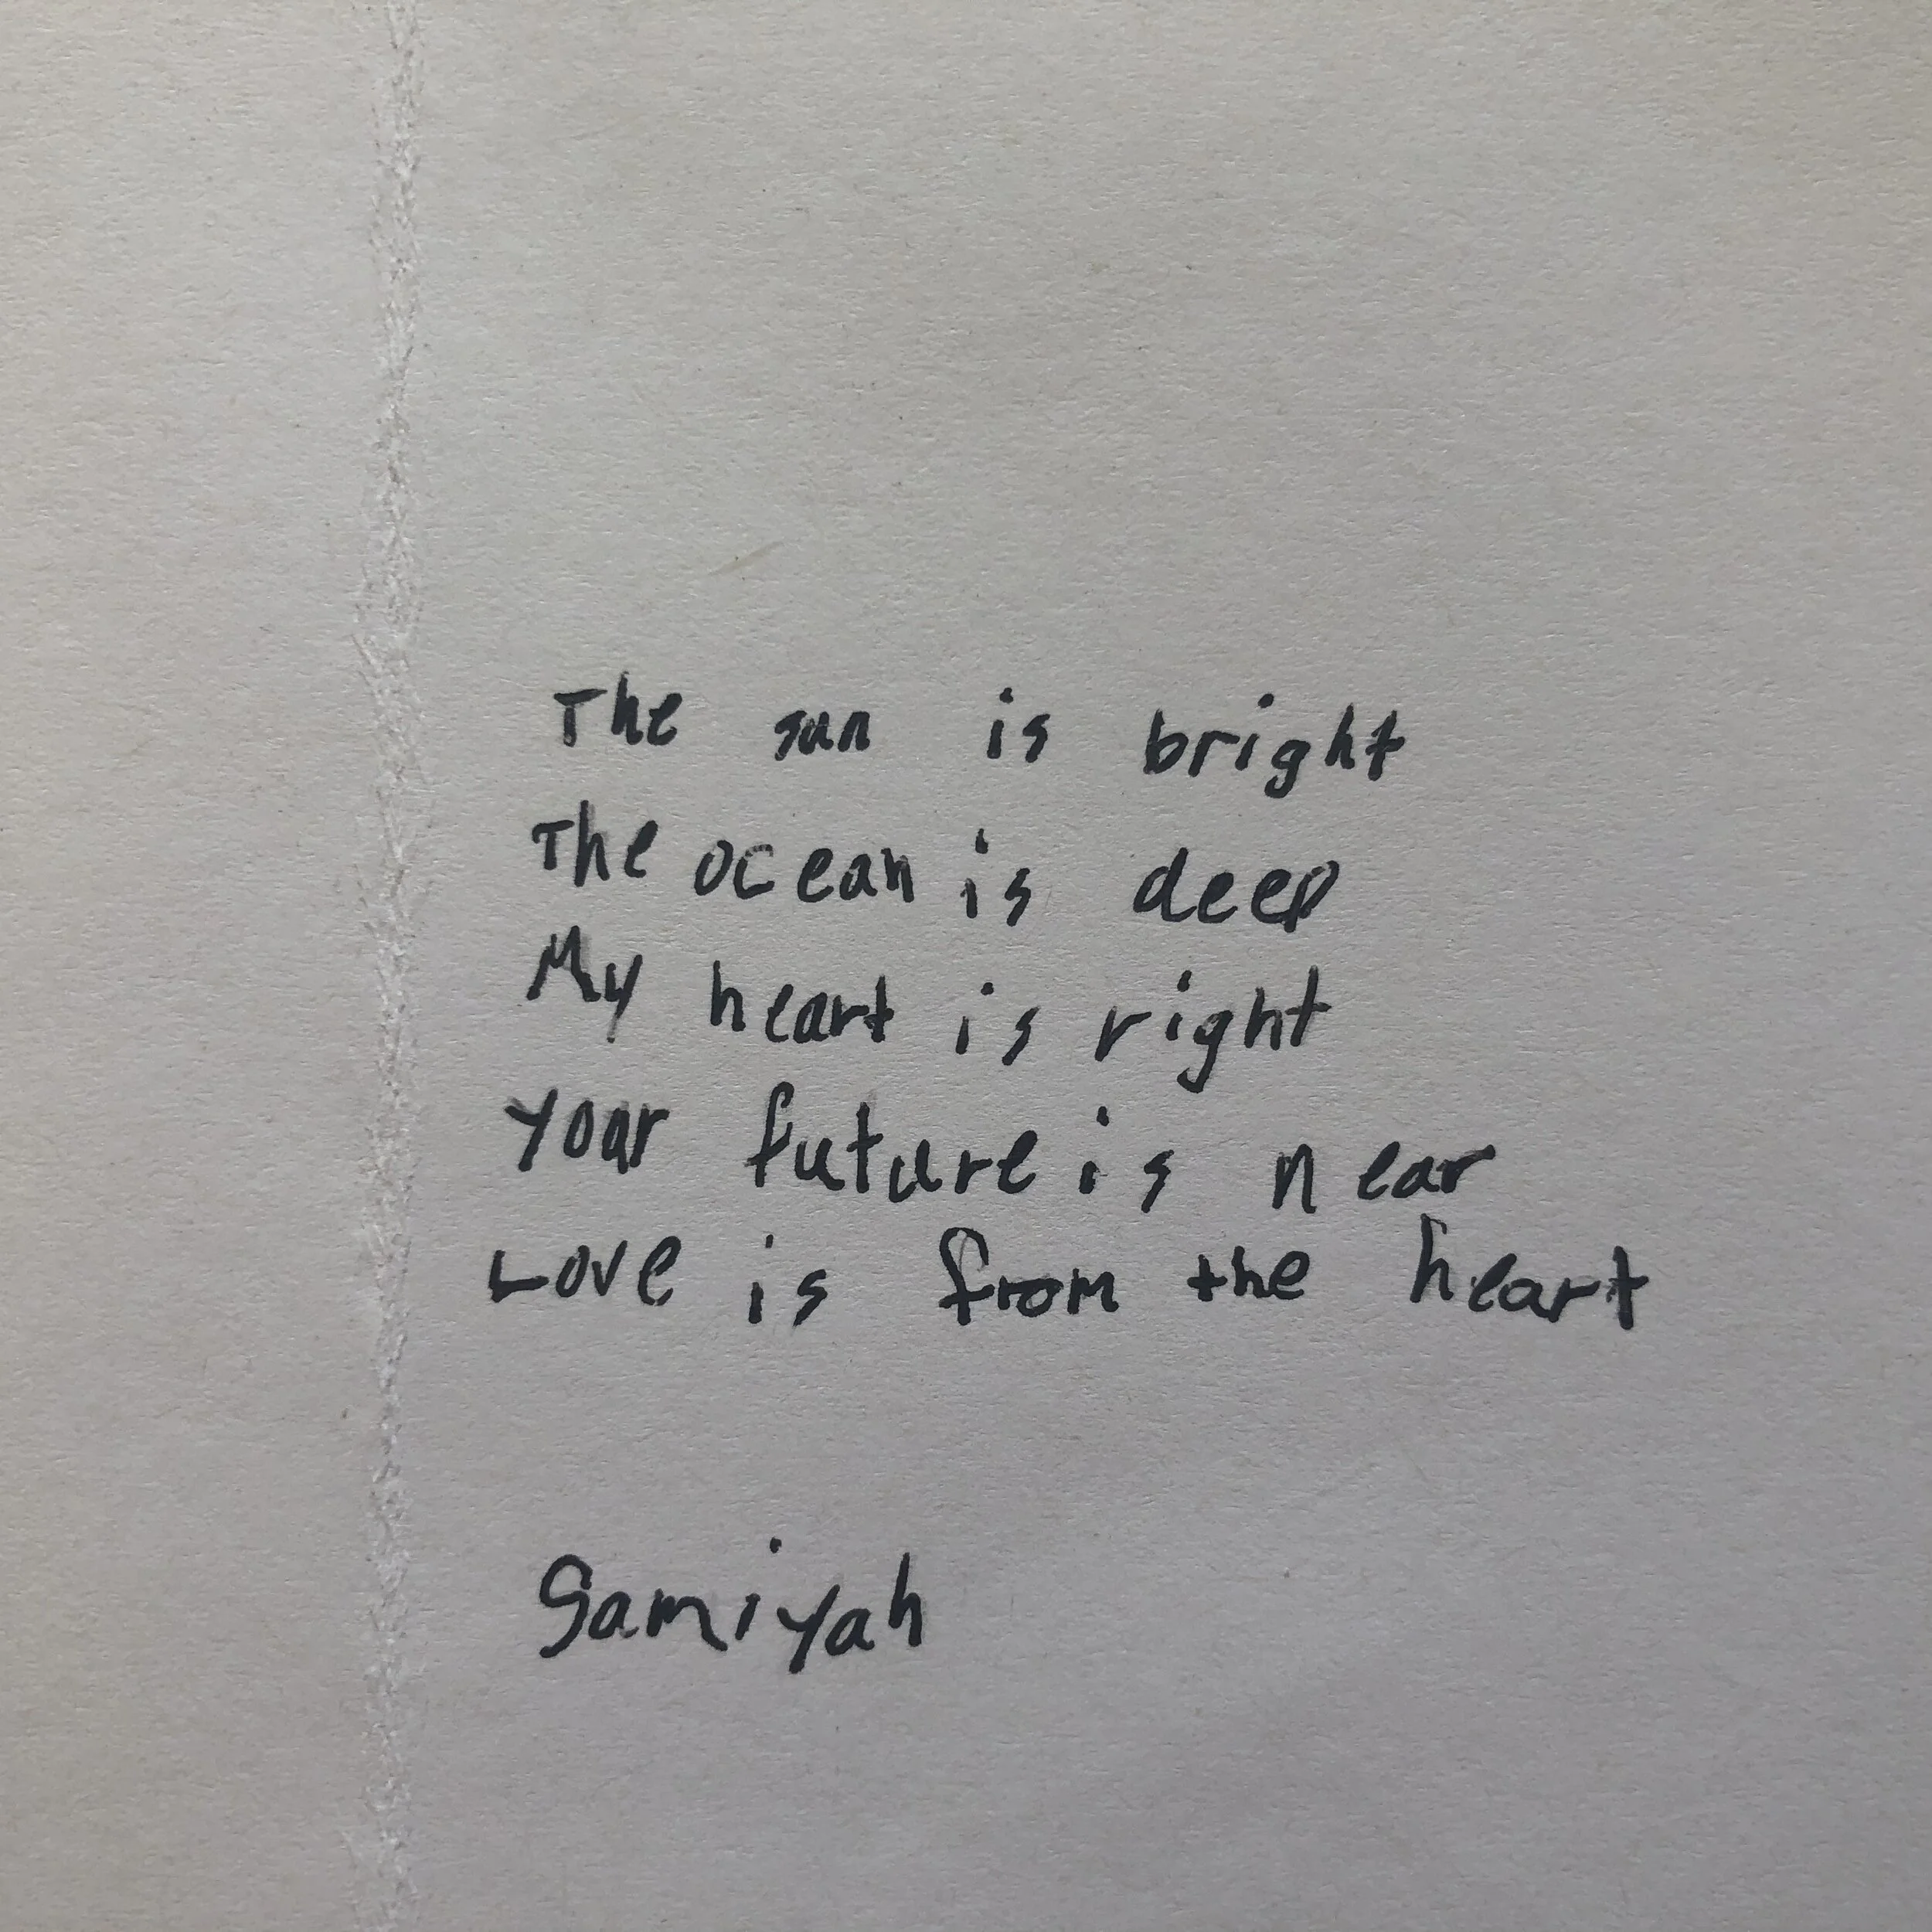 The sun is bright
The ocean is deep
My heart is right
your future is near
Love is from the heart
Samiyah